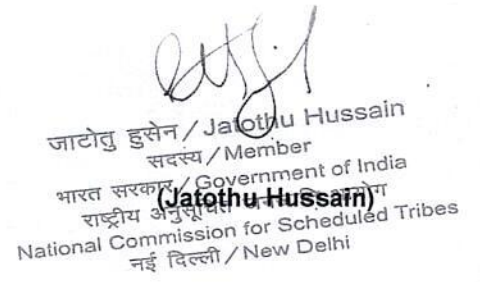 जाटोतु हुसेन / Jatothu Hussain
सदस्य / Member
भारत सरकार / Government of India
(Jatothu Hussain)
राष्ट्रीय अनुसूचित आयोग
National Commission for Scheduled Tribes
नई दिल्ली / New Delhi